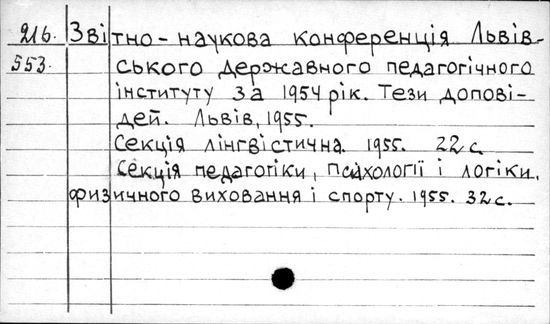 216. Звітно-наукова конференція Львів-
553. ського державного педагогічного
інституту за 1954 рік. Тези допові-
дей. Львів, 1955.
Секція лінгвістична. 1955. 22 с.
Секція педагогіки, психології і логіки,
физичного виховання і спорту. 1955. 32 с.